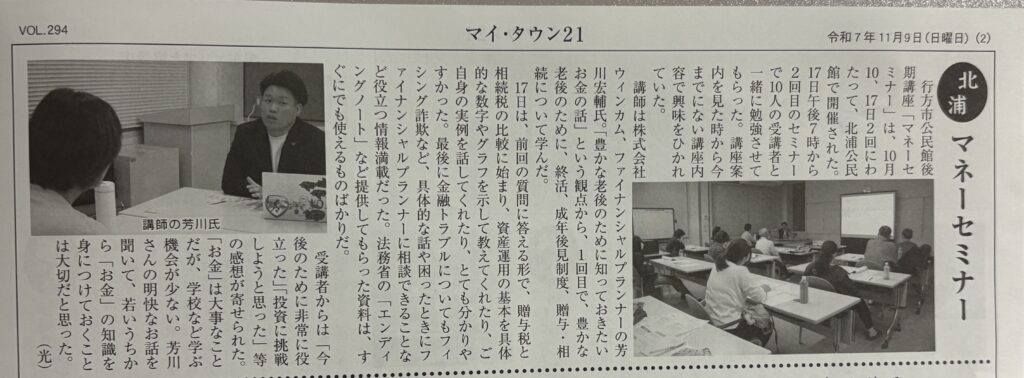 VOL.294
マイ・タウン21
令和7年11月9日(日曜日) (2)
北浦
マネーセミナー
行方市公民館後
期講座「マネーセ
ミナー」は、10月
10、17日2回にわ
たって、北浦公民
館で開催された。
17日午後7時から
2回目のセミナー
で10人の受講者と
一緒に勉強させて
もらった。講座案
内を見た時から今
までにない講座内
容で興味をひかれ
ていた。
講師は株式会社
ウィンカム、ファイナンシャルプランナーの芳
川宏輔氏。「豊かな老後のために知っておきたい
お金の話」という観点から、1回目で、豊かな
老後のために、終活、成年後見制度、贈与・相
続について学んだ。
17日は、前回の質問に答える形で、贈与税と
相続税の比較に始まり、資産運用の基本を具体
的な数字やグラフを示して教えてくれたり、ご
自身の実例を話してくれたり、とても分かりや
すかった。最後に金融トラブルについてもフィ
シング詐欺など、具体的な話や困ったときにフ
ァイナンシャルプランナーに相談できることな
ど役立つ情報満載だった。法務省の「エンディ
ングノート」など提供してもらった資料は、す
ぐにでも使えるものばかりだ。
講師の芳川氏
受講者からは「今
後のために非常に役
立った」「投資に挑戦
しようと思った」等
の感想が寄せられた。
「お金」は大事なこと
だが、学校など学ぶ
機会が少ない。芳川
さんの明快なお話を
聞いて、若いうちか
ら「お金」の知識を
身につけておくこと
は大切だと思った。
(光)